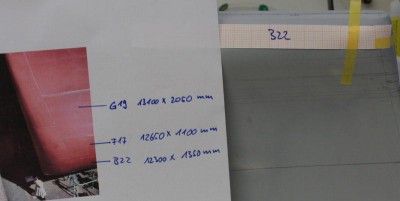 B22
G19 13100 x 2050 mm
F17 12650 x 1100 mm
B22 12300 x 1350 mm